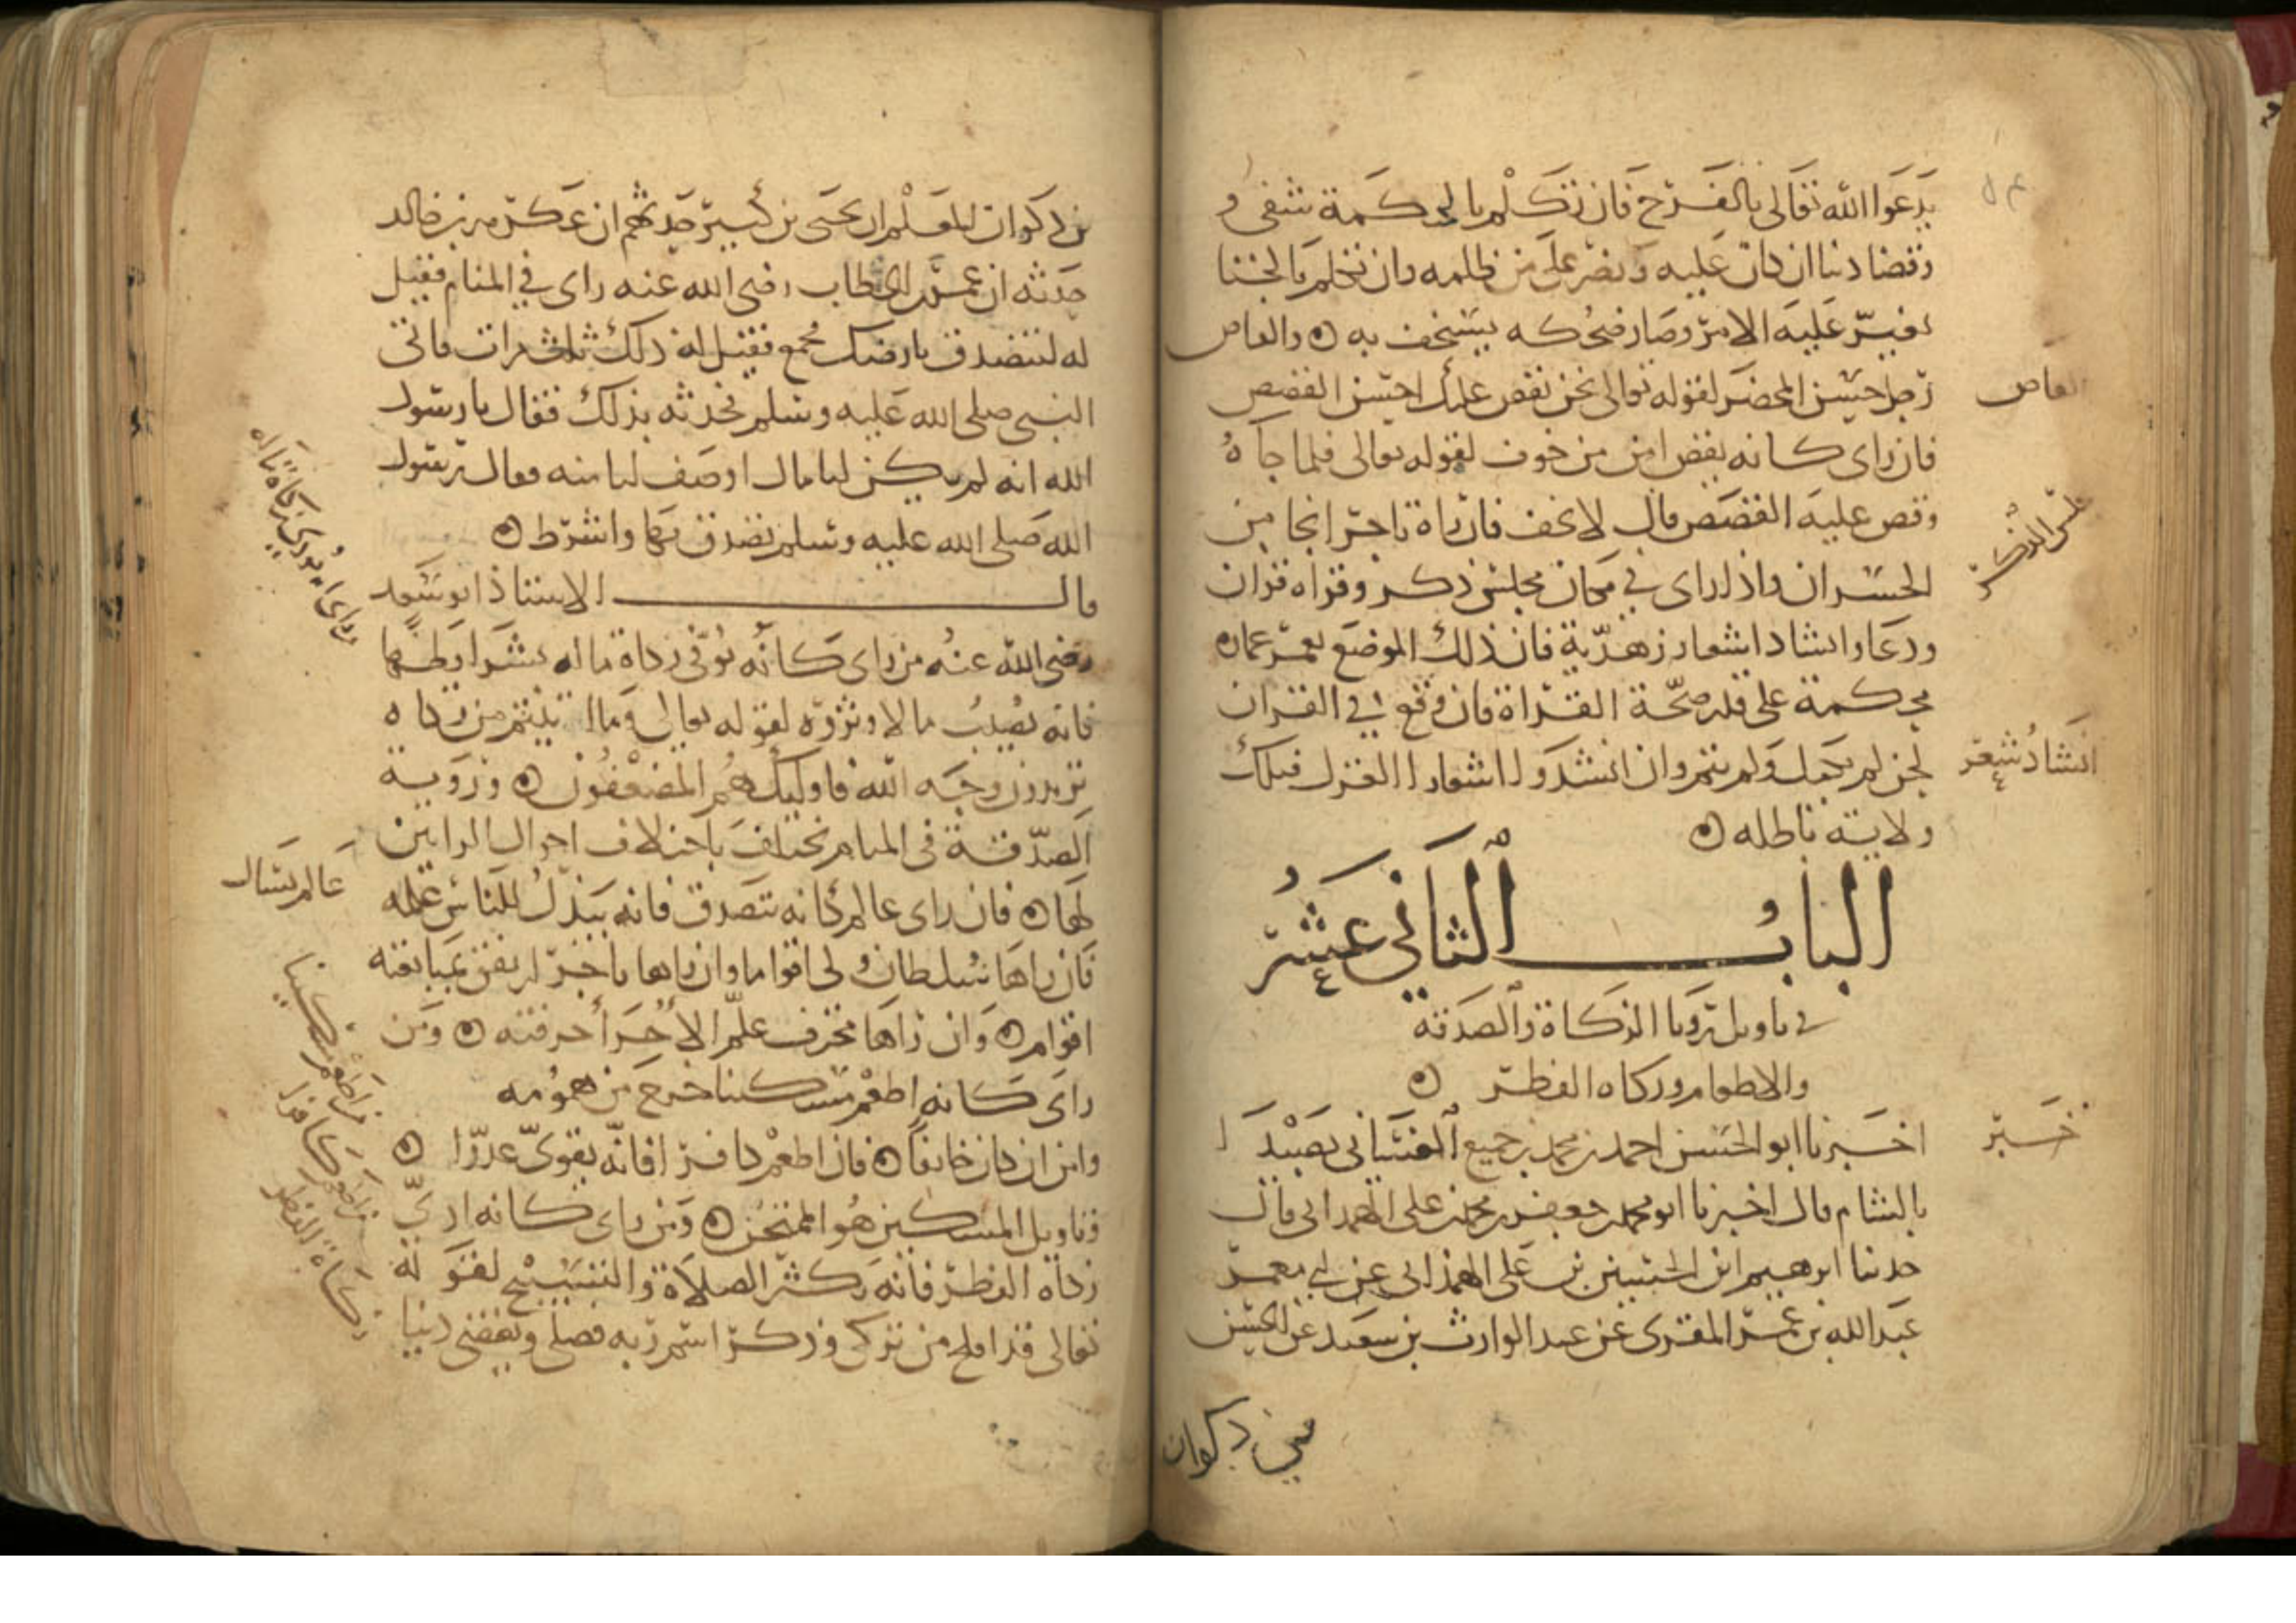 يدعوا الله تعالى بالفرح فان تكلم بالحكمة شفى و
وقضا دينا ان كان عليه ونصر على من ظلمه وان تكلم بالخنا
تعسر عليه الامر وصار ضحكه يستخف به ه والقاص
رجل حسن المحضر لقوله تعالى نحن نقص عليك احسن القصص
القاص
فان راى كانه يقص امن من خوف لقوله تعالى فلما جاه
وقص عليه القصص قال لا تخف فان راه تاجر انجا من
الخسران واذا راى في مكان مجلس ذكر وقراه قران
مجلس الذكر
ودعا وانشاد اشعار زهدية فان ذلك الموضع يعمر عماره
محكمة على قدر صحة القراة فان وقع في القران
لحن لم يكمل ولم يتم وان انشدوا اشعار الغزل فتلك
انشاد شعر
ولاية باطله ه
الباب الثاني عشر
في تاويل رويا الزكاة والصدقة
والاطعام وزكاه الفطر ه
اخبرنا ابو الحسن احمد بن محمد بن جميع الغساني بصيدا
خبر
بالشام قال اخبرنا ابو محمد جعفر بن محمد بن على الهمداني قال
حدثنا ابرهيم ابن الحسين بن على الهمذاني عن ابي معمر
عبد الله بن عمر المقرى عن عبد الوارث بن سعيد عن الحسين
بن ذكوان
بن ذكوان المعلم ان يحيى بن كثير حدثهم ان عكرمه بن خالد
حدثه ان عمر بن الخطاب رضى الله عنه راى في المنام فقيل
له لتتصدق بارضك ثمغ فقيل له ذلك ثلاث مرات فاتى
النبى صلى الله عليه وسلم فحدثه بذلك فقال يا رسول
الله انه لم يكن لنا مال اوصف لنا منه فقال رسول
الله صلى الله عليه وسلم تصدق بها واشرط ه
قال الاستاذ ابو سعد
رضى الله عنه من راى كانه يوفى زكاة ماله بشرايطها
راى انه يودى زكاة ماله
فانه يصيب مالا وثروه لقوله تعالى وما اتيتم من زكاه
تريدون وجه الله فاوليك هم المضعفون ه ورويه
الصدقة في المنام تختلف باختلاف احوال الرايين
لها ه فان راى عالم كانه تصدق فانه يبذل للناس علمه
عالم يسال
فان راها سلطان ولى اقواما وان راها تاجر ارتفق بمبايعته
اقوام ه وان راها محترف علم الاجرا حرفته ه ومن
راى كانه اطعم مسكينا خرج من همومه
من اطعم مسكينا
وامن ان كان خايفا ه فان اطعم كافرا فانه يقوى عدوا ه
من اطعم كافرا
وتاويل المسكين هو الممتحن ه ومن راى كانه ادى
زكاه الفطر فانه يكثر الصلاة والتسبيح لقوله
زكاة الفطر
تعالى قد افلح من تزكى وذكر اسم ربه فصلى ويقضى دينا